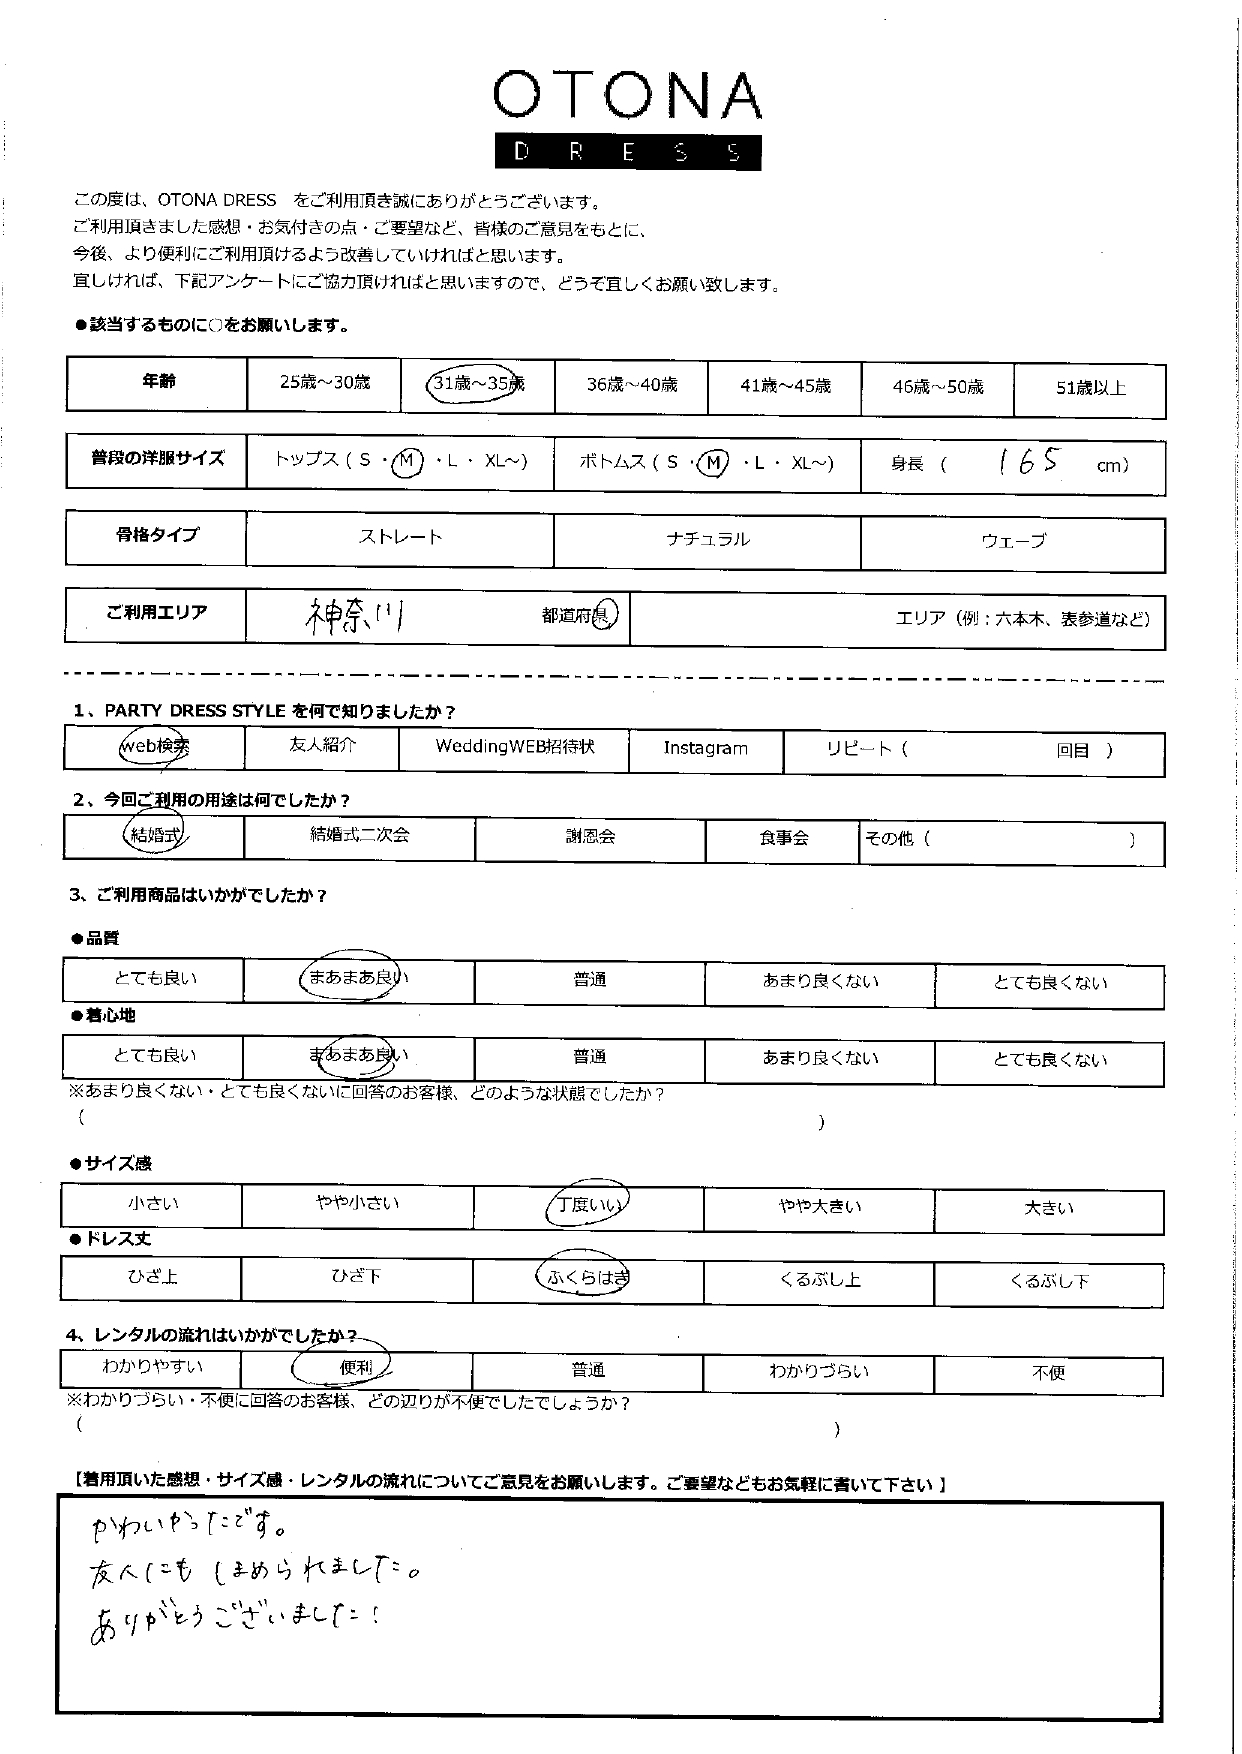 OTONA
DRESS
この度は、OTONA DRESS　をご利用頂き誠にありがとうございます。
ご利用頂きました感想・お気付きの点・ご要望など、皆様のご意見をもとに、
今後、より便利にご利用頂けるよう改善していければと思います。
宜しければ、下記アンケートにご協力頂ければと思いますので、どうぞ宜しくお願い致します。
●該当するものに○をお願いします。
年齢 25歳～30歳 31歳～35歳 36歳～40歳 41歳～45歳 46歳～50歳 51歳以上
普段の洋服サイズ トップス（ S ・ M ・ L ・ XL～） ボトムス（ S ・ M ・ L ・ XL～） 身長（ 165 cm）
骨格タイプ ストレート ナチュラル ウェーブ
ご利用エリア 神奈川 都道府県 エリア（例：六本木、表参道など）
1、PARTY DRESS STYLE を何で知りましたか？
web検索 友人紹介 WeddingWEB招待状 Instagram リピート（ 回目 ）
2、今回ご利用の用途は何でしたか？
結婚式 結婚式二次会 謝恩会 食事会 その他（ ）
3、ご利用商品はいかがでしたか？
●品質
とても良い まあまあ良い 普通 あまり良くない とても良くない
●着心地
とても良い まあまあ良い 普通 あまり良くない とても良くない
※あまり良くない・とても良くないに回答のお客様、どのような状態でしたか？
（ ）
●サイズ感
小さい やや小さい 丁度いい やや大きい 大きい
●ドレス丈
ひざ上 ひざ下 ふくらはぎ くるぶし上 くるぶし下
4、レンタルの流れはいかがでしたか？
わかりやすい 便利 普通 わかりづらい 不便
※わかりづらい・不便に回答のお客様、どの辺りが不便でしたでしょうか？
（ ）
【着用頂いた感想・サイズ感・レンタルの流れについてご意見をお願いします。ご要望などもお気軽に書いて下さい】
かわいかったです。
友人にもほめられました。
ありがとうございました！